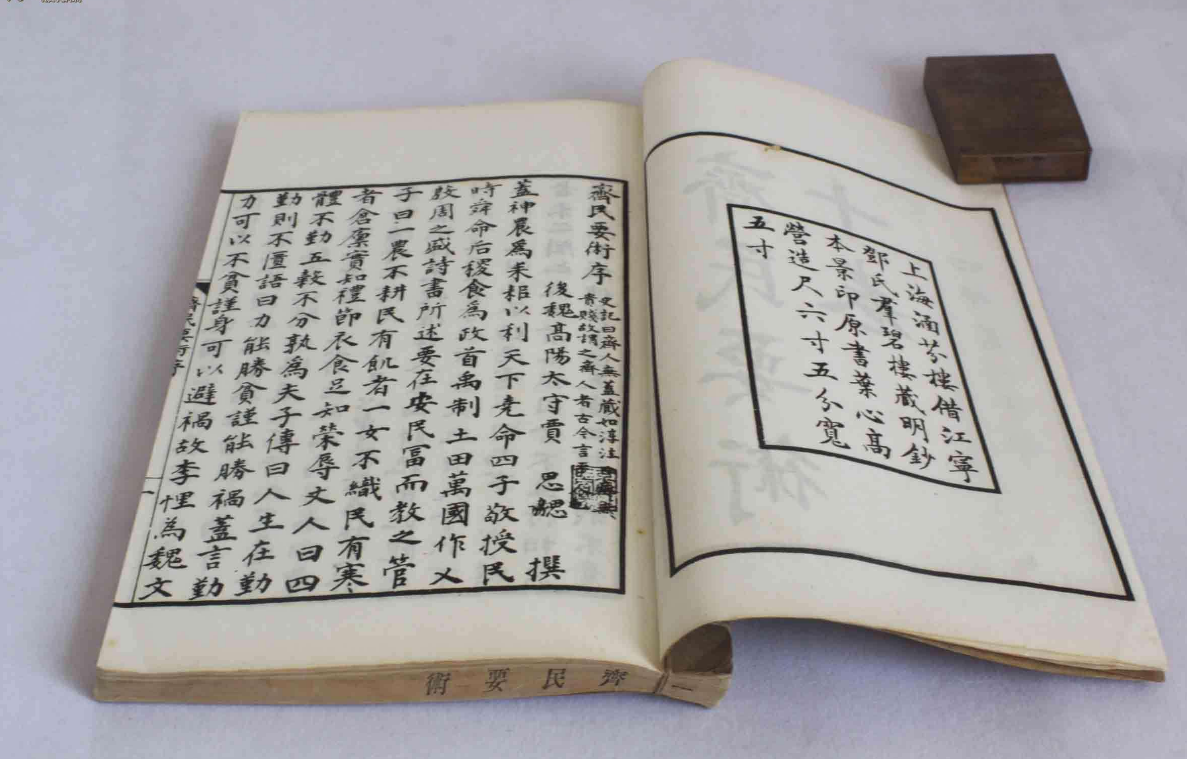 上海涵芬樓借江寧
鄧氏羣碧樓藏明鈔
本景印原書葉心高
營造尺六寸五分寬
五寸
齊民要術序
史記曰齊人無蓋藏如淳注
貴賤故謂之齊人者古今言
後魏髙陽太守賈 思勰 撰
蓋神農爲耒耜以利天下堯命四子敬授民
時舜命后稷食爲政首禹制土田萬國作乂
殷周之盛詩書所述要在安民冨而教之管
子曰一農不耕民有飢者一女不織民有寒
者倉廩實知禮節衣食足知榮辱丈人曰四
體不勤五穀不分孰爲夫子傳曰人生在勤
勤則不匱語曰力能勝貧謹能勝禍蓋言勤
力可以不貧謹身可以避禍故李悝爲魏文
齊民要術序 一
齊民要術 一